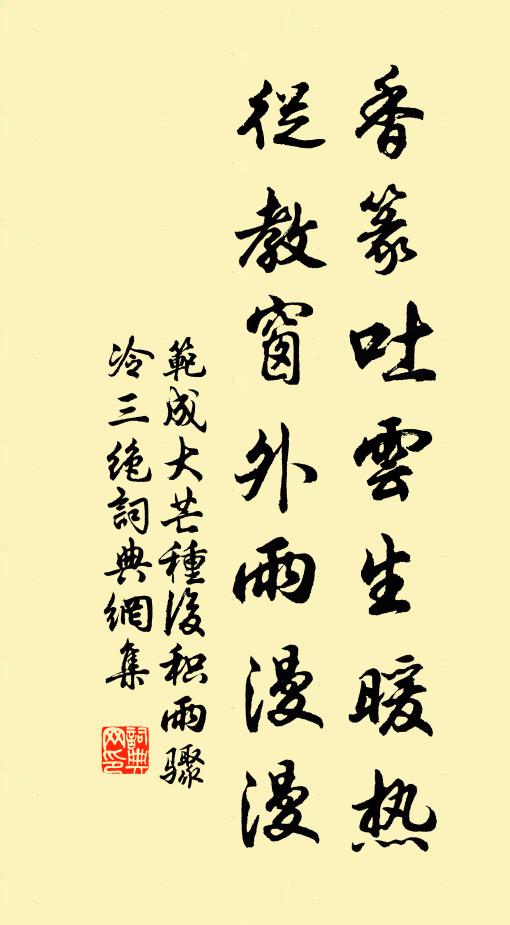 香篆吐雲生暖热
從教窗外雨漫漫
範成大芒種後积雨驟
冷三絶詞典網集
詞典
网印